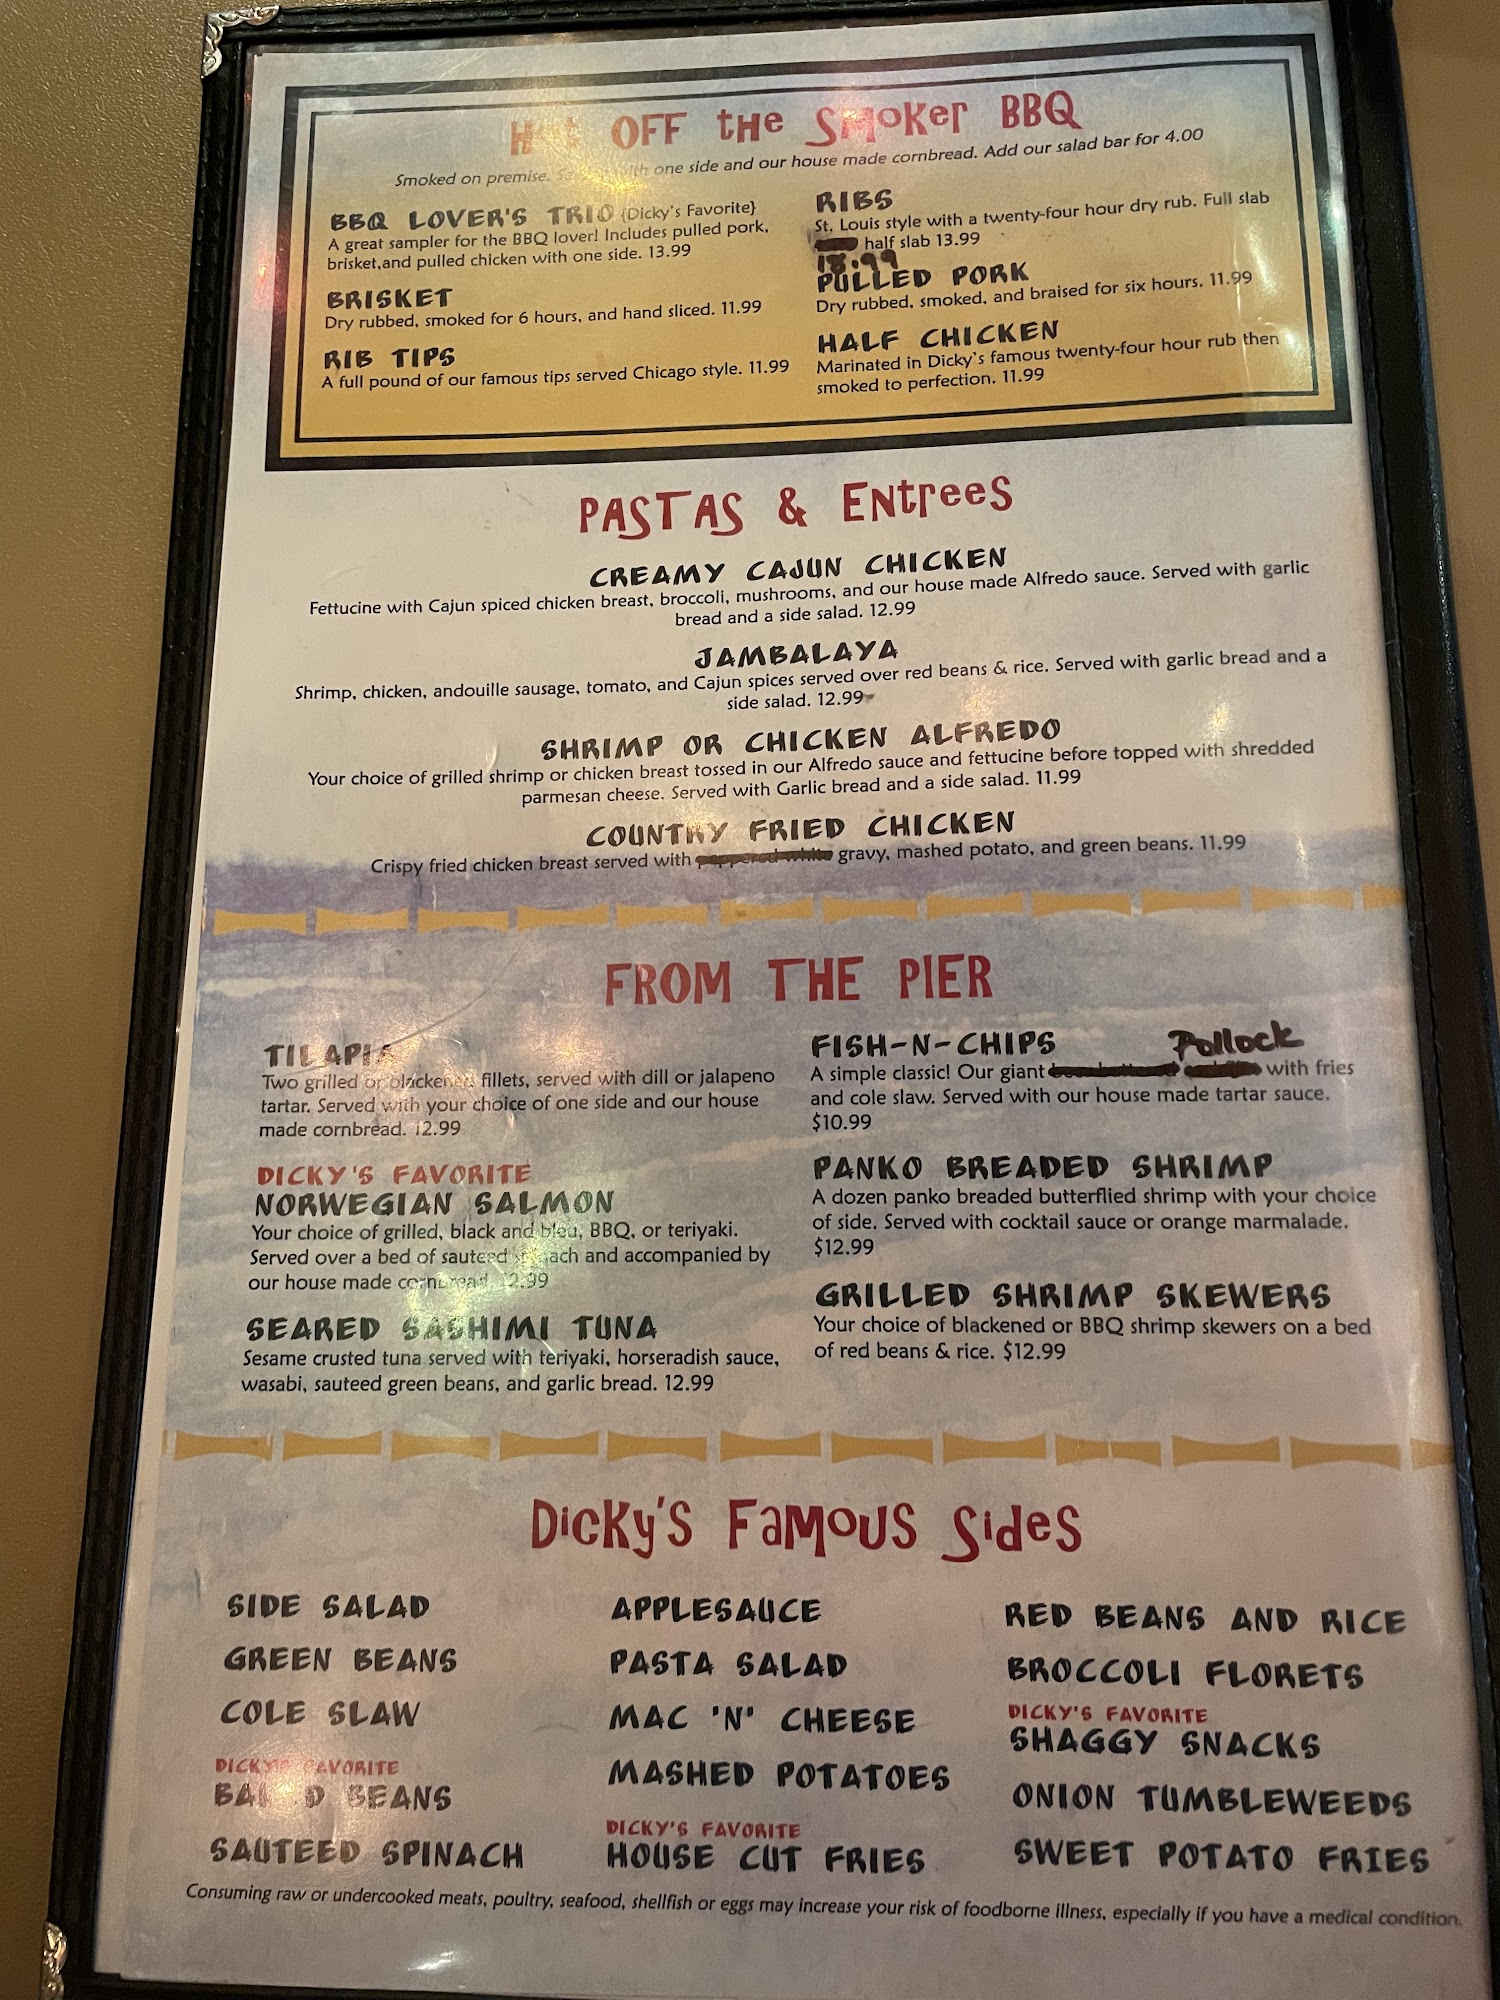 Hot OFF the Smoker BBQ
Smoked on premise. with one side and our house made cornbread. Add our salad bar for 4.00
BBQ LOVER'S TRIO {Dicky's Favorite}
A great sampler for the BBQ lover! Includes pulled pork,
brisket,and pulled chicken with one side. 13.99
BRISKET
Dry rubbed, smoked for 6 hours, and hand sliced. 11.99
RIB TIPS
A full pound of our famous tips served Chicago style. 11.99
RIBS
St. Louis style with a twenty-four hour dry rub. Full slab
half slab 13.99
18.99
PULLED PORK
Dry rubbed, smoked, and braised for six hours. 11.99
HALF CHICKEN
Marinated in Dicky's famous twenty-four hour rub then
smoked to perfection. 11.99
PASTAS & ENtrees
CREAMY CAJUN CHICKEN
Fettucine with Cajun spiced chicken breast, broccoli, mushrooms, and our house made Alfredo sauce. Served with garlic
bread and a side salad. 12.99
JAMBALAYA
Shrimp, chicken, andouille sausage, tomato, and Cajun spices served over red beans & rice. Served with garlic bread and a
side salad. 12.99
SHRIMP OR CHICKEN ALFREDO
Your choice of grilled shrimp or chicken breast tossed in our Alfredo sauce and fettucine before topped with shredded
parmesan cheese. Served with Garlic bread and a side salad. 11.99
COUNTRY FRIED CHICKEN
Crispy fried chicken breast served with peppered white gravy, mashed potato, and green beans. 11.99
FROM THE PIER
TILAPIA
Two grilled or blackened fillets, served with dill or jalapeno
tartar. Served with your choice of one side and our house
made cornbread. 12.99
DICKY'S FAVORITE
NORWEGIAN SALMON
Your choice of grilled, black and bleu, BBQ, or teriyaki.
Served over a bed of sauteed spinach and accompanied by
our house made cornbread. 12.99
SEARED SASHIMI TUNA
Sesame crusted tuna served with teriyaki, horseradish sauce,
wasabi, sauteed green beans, and garlic bread. 12.99
FISH-N-CHIPS
Pollock
A simple classic! Our giant with fries
and cole slaw. Served with our house made tartar sauce.
$10.99
PANKO BREADED SHRIMP
A dozen panko breaded butterflied shrimp with your choice
of side. Served with cocktail sauce or orange marmalade.
$12.99
GRILLED SHRIMP SKEWERS
Your choice of blackened or BBQ shrimp skewers on a bed
of red beans & rice. $12.99
Dicky's Famous Sides
SIDE SALAD
GREEN BEANS
COLE SLAW
DICKY'S FAVORITE
BAKED BEANS
SAUTEED SPINACH
APPLESAUCE
PASTA SALAD
MAC 'N' CHEESE
MASHED POTATOES
DICKY'S FAVORITE
HOUSE CUT FRIES
RED BEANS AND RICE
BROCCOLI FLORETS
DICKY'S FAVORITE
SHAGGY SNACKS
ONION TUMBLEWEEDS
SWEET POTATO FRIES
Consuming raw or undercooked meats, poultry, seafood, shellfish or eggs may increase your risk of foodborne illness, especially if you have a medical condition.